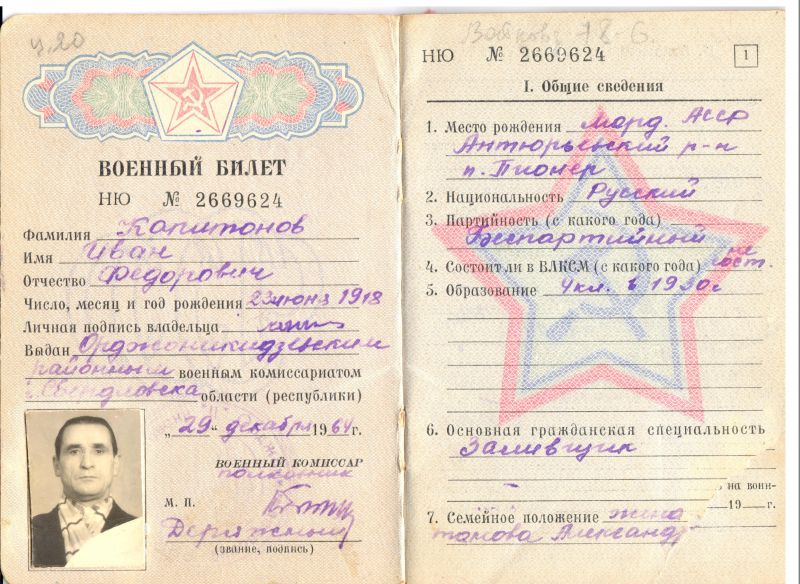 ч.20
ВОЕННЫЙ БИЛЕТ
НЮ № 2669624
Фамилия Капитонов
Имя Иван
Отчество Федорович
Число, месяц и год рождения 23 июня 1918
Личная подпись владельца
Выдан Орджоникидзевским
районным военным комиссариатом
г. Свердловска области (республики)
„29“ декабря 1964 г.
ВОЕННЫЙ КОМИССАР
полковник
М. П.
(звание, подпись)
78-6.
НЮ № 2669624
1
I. Общие сведения
1. Место рождения Морд. АССР
Антюрьевский р-н
п. Пионер
2. Национальность Русский
3. Партийность (с какого года)
Беспартийный
4. Состоит ли в ВЛКСМ (с какого года) не
сост.
5. Образование 4 кл. в 1930 г
6. Основная гражданская специальность
Заливщик
на воин-
19 г.
7. Семейное положение жена
Александ